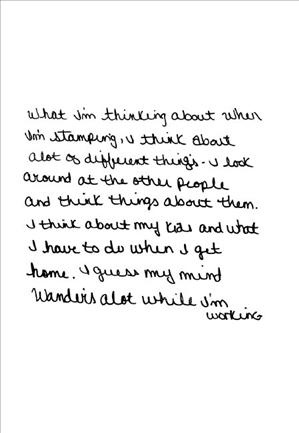 What I'm thinking about when
I'm stamping, I think about
alot of different things. I look
around at the other people
and think things about them.
I think about my kids and what
I have to do when I get
home. I guess my mind
Wanders alot while I'm
working